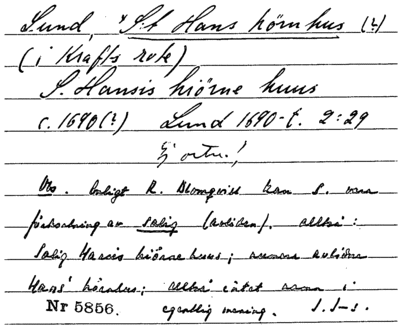 Lund, "S:t Hans hörnhus (?)
(i Krafts rote)
S. Hansis hiörne huus
c. 1690(?) Lund 1690-t. 2:29
Ej ortn.!
Obs. Enligt R. Blomqvist kan S. vara
förkortning av salig (avliden). alltså:
Salig Hansis hiörne huus; senare avlidne
Hans' hörnhus; alltså intet namn i
Nr 5856. egentlig mening. J. J-s.